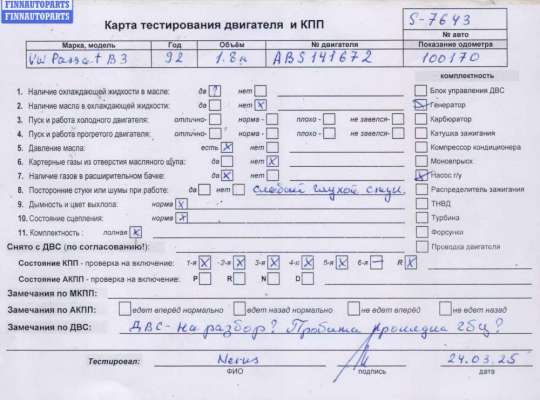 FINNAUTOPARTS
FINNAUTOPARTS
Карта тестирования двигателя и КПП
S-7643
№ авто
Марка, модель Год Объём № двигателя Показание одометра
VW Passat B3 92 1.8л ABS141672 100170
- комплектность
1. Наличие охлаждающей жидкости в масле: да ? нет Блок управления ДВС
2. Наличие масла в охлаждающей жидкости: да нет X Генератор
3. Пуск и работа холодного двигателя: отлично- норма - плохо - не завелся- Карбюратор
4. Пуск и работа прогретого двигателя: отлично- норма - плохо - не завелся- Катушка зажигания
5. Давление масла: есть X нет Компрессор кондиционера
6. Картерные газы из отверстия масляного щупа: да нет Моновпрыск
7. Наличие газов в расширительном бачке: да X нет X Насос г/у
8. Посторонние стуки или шумы при работе: да нет слабый глухой стук. Распределитель зажигания
9. Дымность и цвет выхлопа: норма X ТНВД
10. Состояние сцепления: норма X Турбина
11. Комплектность : полная X Форсунки
Снято с ДВС (по согласованию!): Проводка двигателя
Состояние КПП - проверка на включение: 1-я X -2-я X 3-я X 4-я X 5-я X 6-я – R X
Состояние АКПП - проверка на включение: P R N D
Замечания по МКПП:
Замечания по АКПП: едет вперёд нормально едет назад нормально не едет вперёд не едет назад
Замечания по ДВС: ДВС - на разбор? Пробита прокладка гбц?
Тестировал: 24.03.25
ФИО подпись дата